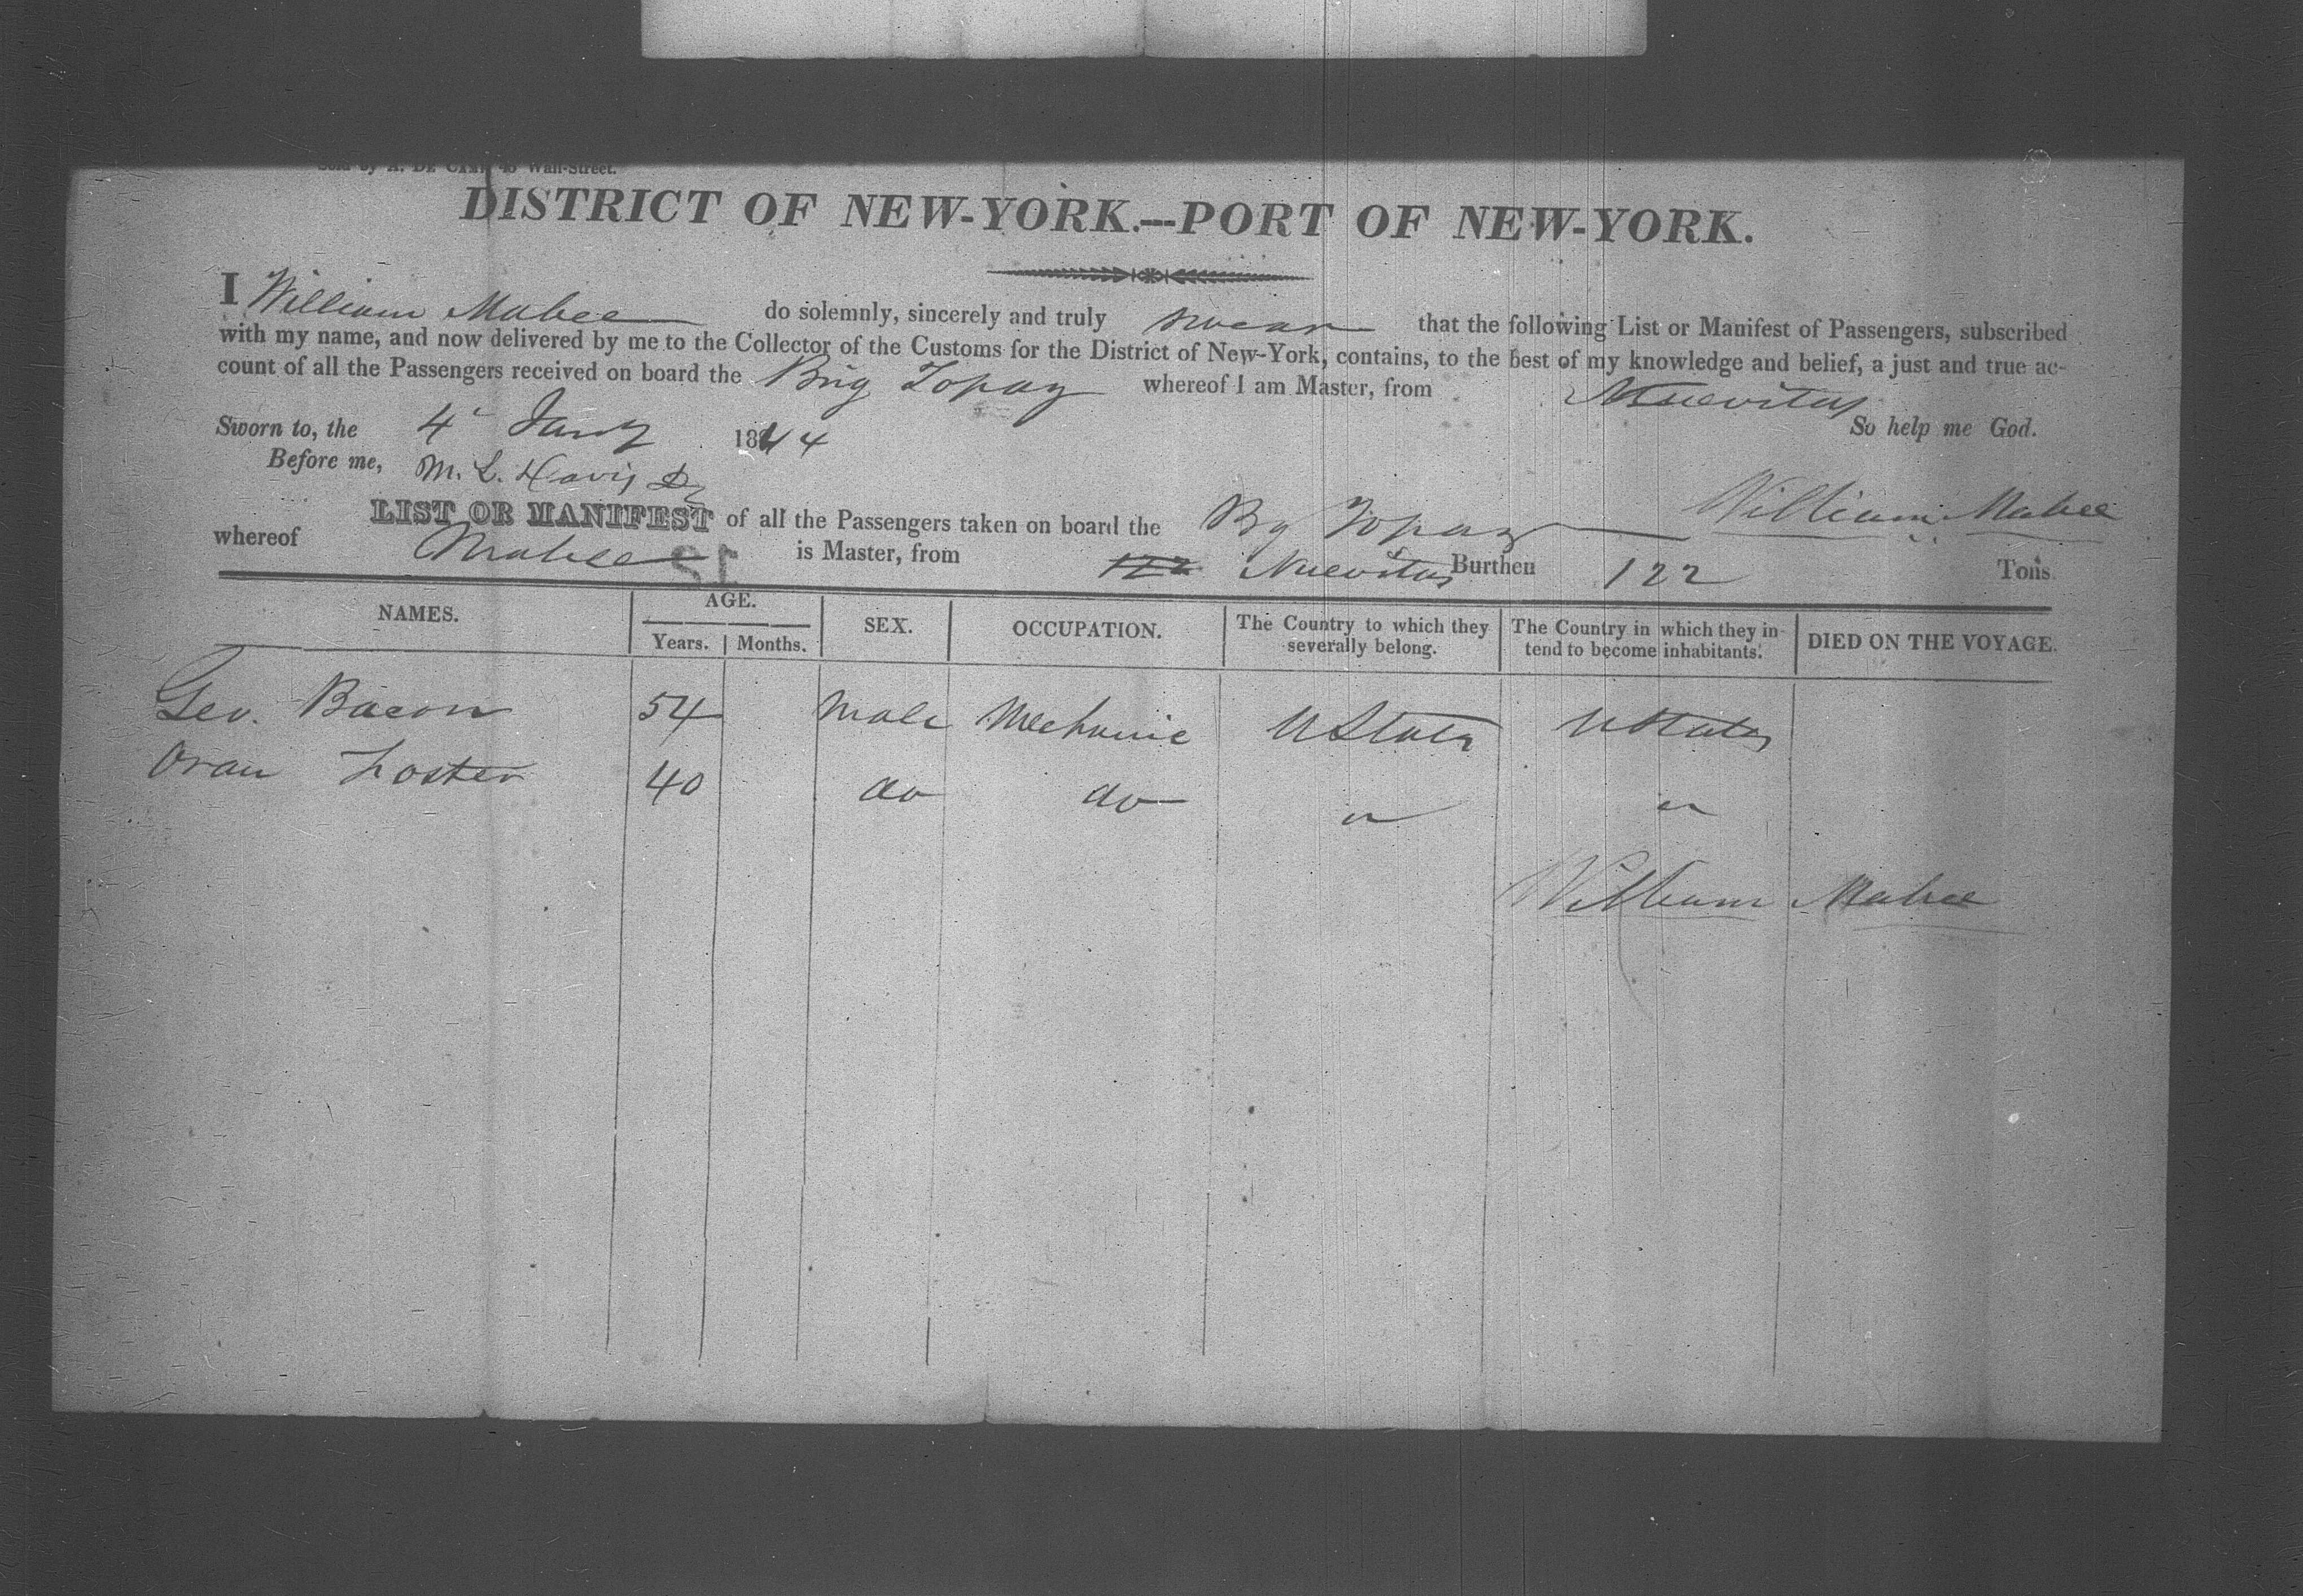 Sold by A. DE Wall-Street.
DISTRICT OF NEW-YORK.---PORT OF NEW-YORK.
I William Mabee do solemnly, sincerely and truly swear that the following List or Manifest of Passengers, subscribed
with my name, and now delivered by me to the Collector of the Customs for the District of New-York, contains, to the best of my knowledge and belief, a just and true ac-
count of all the Passengers received on board the Brig Topaz whereof I am Master, from Nuevitas
So help me God.
Sworn to, the 4 Jany 1844
Before me, M. L. Davis
William Mabee
LIST OR MANIFEST of all the Passengers taken on board the Bg Topaz
whereof Mabee is Master, from 122 Nuevitas Burthen 122 Tons
NAMES. AGE. SEX. OCCUPATION. The Country to which they severally belong. The Country in which they in-tend to become inhabitants. DIED ON THE VOYAGE.
Years. Months.
Geo. Bacon 54 male Mechanic UStates UStates
Oran Foster 40 do do " "
William Mabee